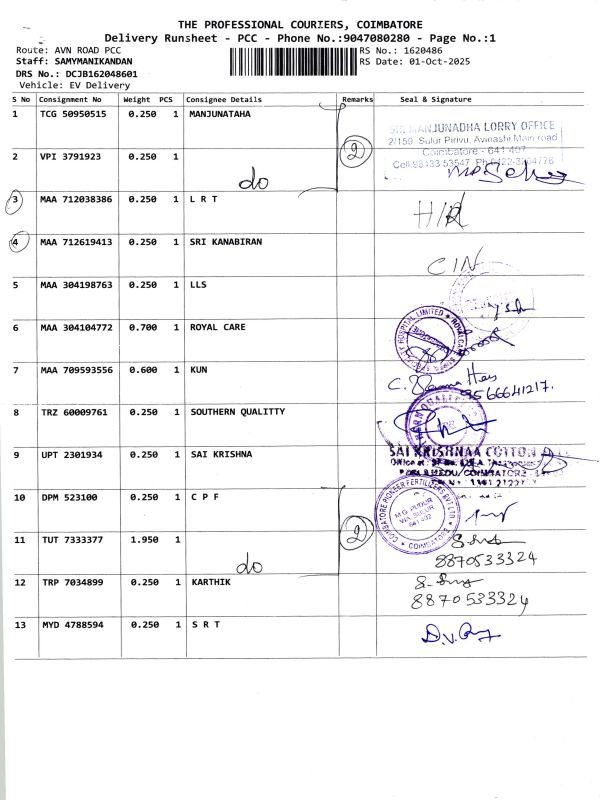 THE PROFESSIONAL COURIERS, COIMBATORE
Delivery Runsheet - PCC - Phone No.:9047080280 - Page No.:1
Route: AVN ROAD PCC RS No.: 1620486
Staff: SAMYMANIKANDAN RS Date: 01-Oct-2025
DRS No.: DCJB162048601
Vehicle: EV Delivery
S No Consignment No Weight PCS Consignee Details Remarks Seal & Signature
1 TCG 50950515 0.250 1 MANJUNATAHA
SRI MANJUNADHA LORRY OFFICE
2/159, Sulur Pirivu, Avinashi Main road
Coimbatore - 641 407
2
2 VPI 3791923 0.250 1
do
3 MAA 712038386 0.250 1 L R T
4 MAA 712619413 0.250 1 SRI KANABIRAN
CIN
5 MAA 304198763 0.250 1 LLS
6 MAA 304104772 0.700 1 ROYAL CARE
7 MAA 709593556 0.600 1 KUN
9566641217.
8 TRZ 60009761 0.250 1 SOUTHERN QUALITTY
9 UPT 2301934 0.250 1 SAI KRISHNA
SAI KRISHNAA COTTON
10 DPM 523100 0.250 1 C P F
COIMBATORE PIONEER FERTILIZERS PVT LTD
COIMBATORE
2
11 TUT 7333377 1.950 1
8870533324
do
12 TRP 7034899 0.250 1 KARTHIK
8870533324
13 MYD 4788594 0.250 1 S R T